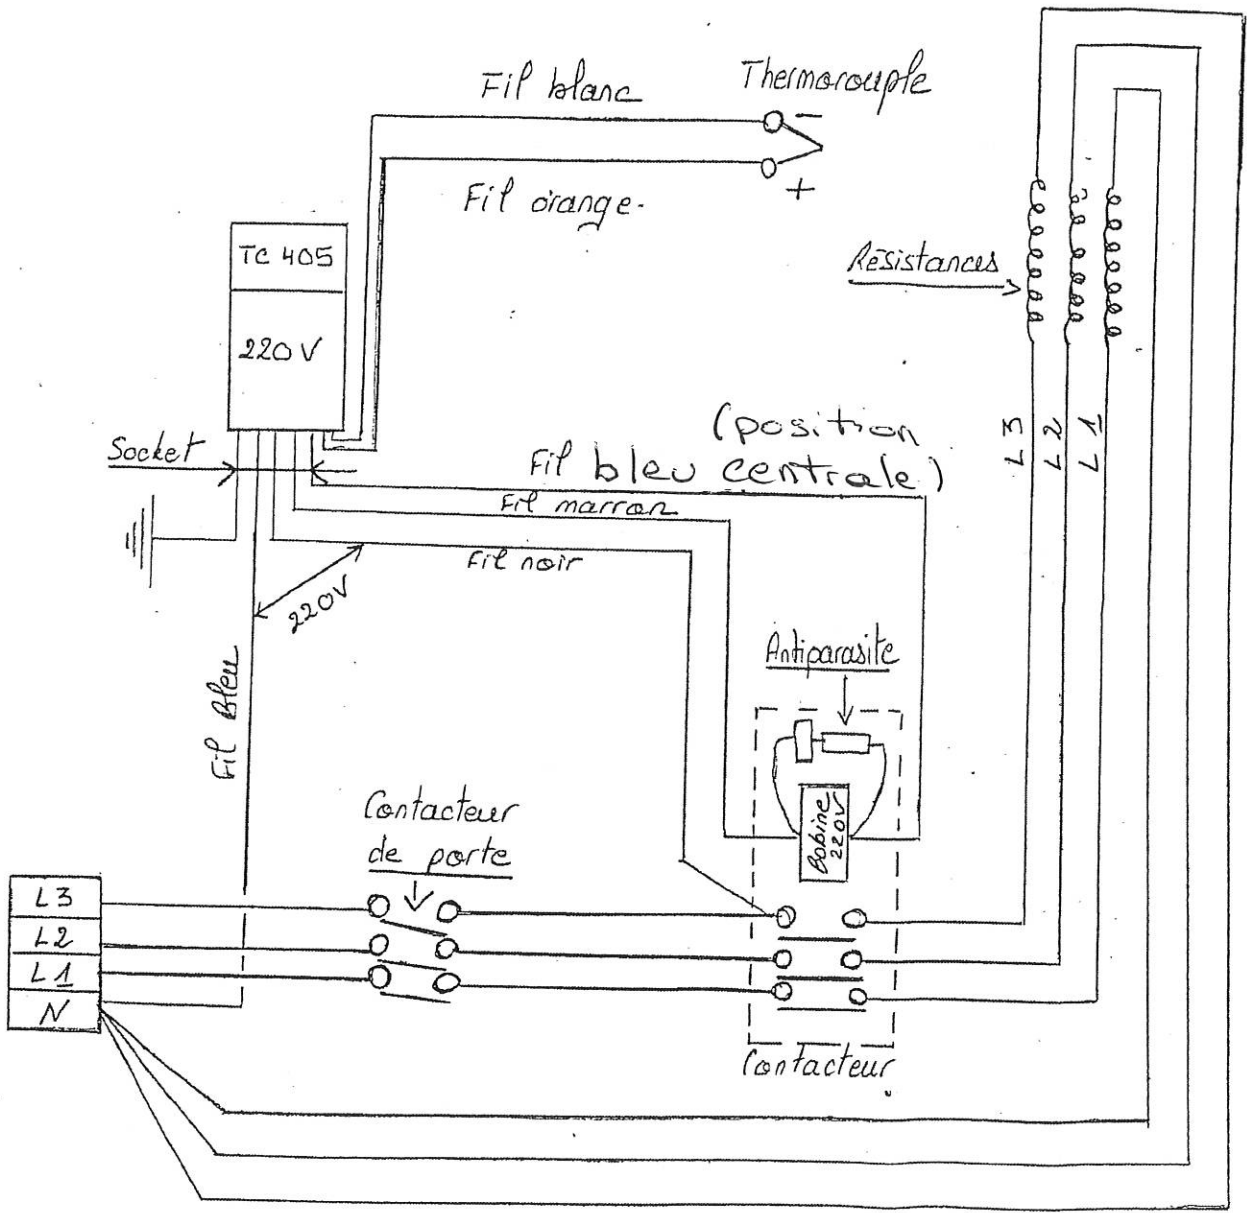 Fil blanc
Thermocouple
-
+
Fil orange.
TC 405
220V
Résistances
Socket
(position
Fil bleu centrale)
Fil marron
Fil noir
220V
L3
L2
L1
Antiparasite
Fil Bleu
Bobine
220V
Contacteur
de porte
L3
L2
L1
N
Contacteur